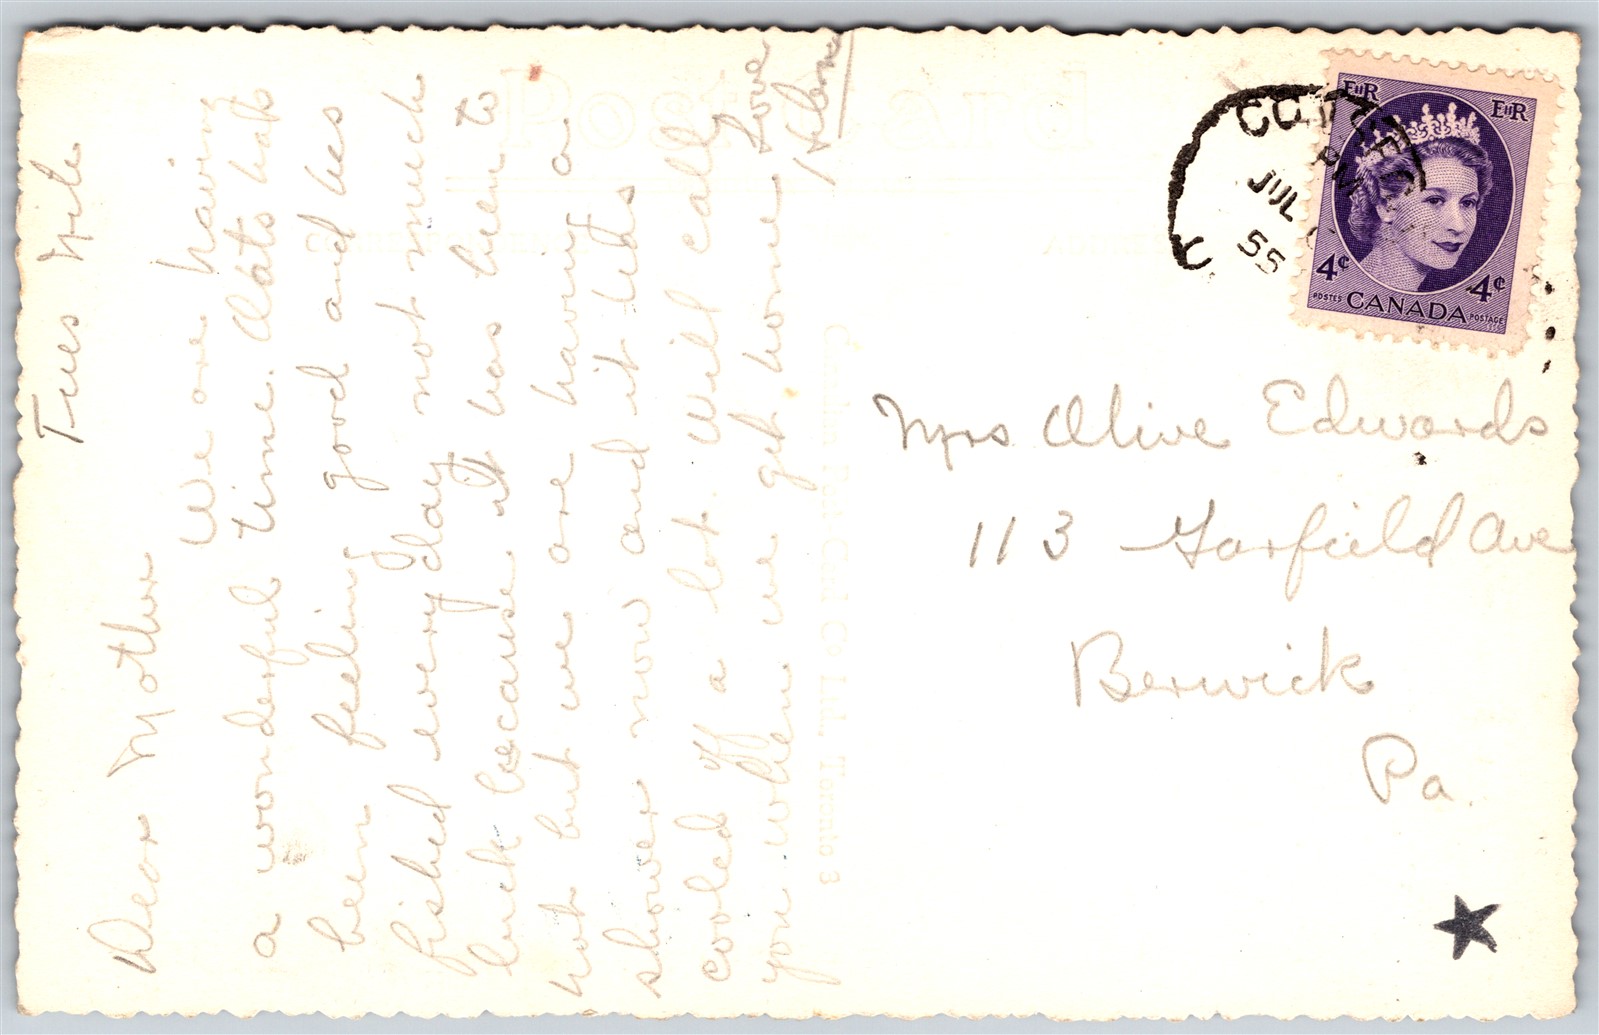 Tues Nite
Dear Mother
We are having
a wonderful time. Dats has
been feeling good and has
fished every day not much
luck because it has been to
hot but we are having a
shower now and it lets
cooled off a lot. Will call
you when we get home
Love
Helen
Post Card
CORRESPONDENCE
ADDRESS
Post Card Co Ltd., Toronto 3
JUL
PM
55
EIIR
EIIR
4¢
4¢
POSTES CANADA POSTAGE
Mrs Olive Edwards
113 Garfield Ave
Berwick
Pa.